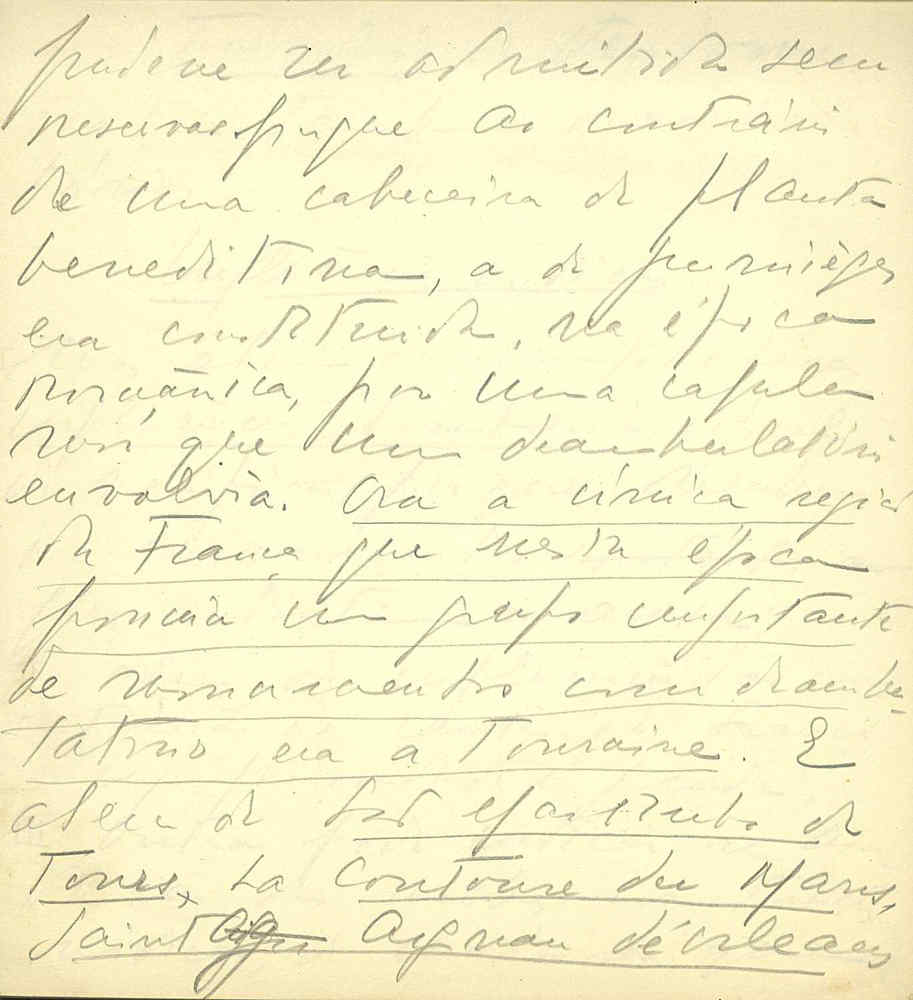 pudesse ser admitida sem
reservas porque ao contrário
de uma cabeceira de planta
beneditina, a de Jumièges
era constituida, na época
românica, por uma capela
que um deambulatório
envolvia. Ora a única região
da França que nesta época
possuia um grupo importante
de monumentos com deambu-
latorio era a Touraine. E
alem de
Tours, La Couture du Mans,
Saint Aignan d'Orleans